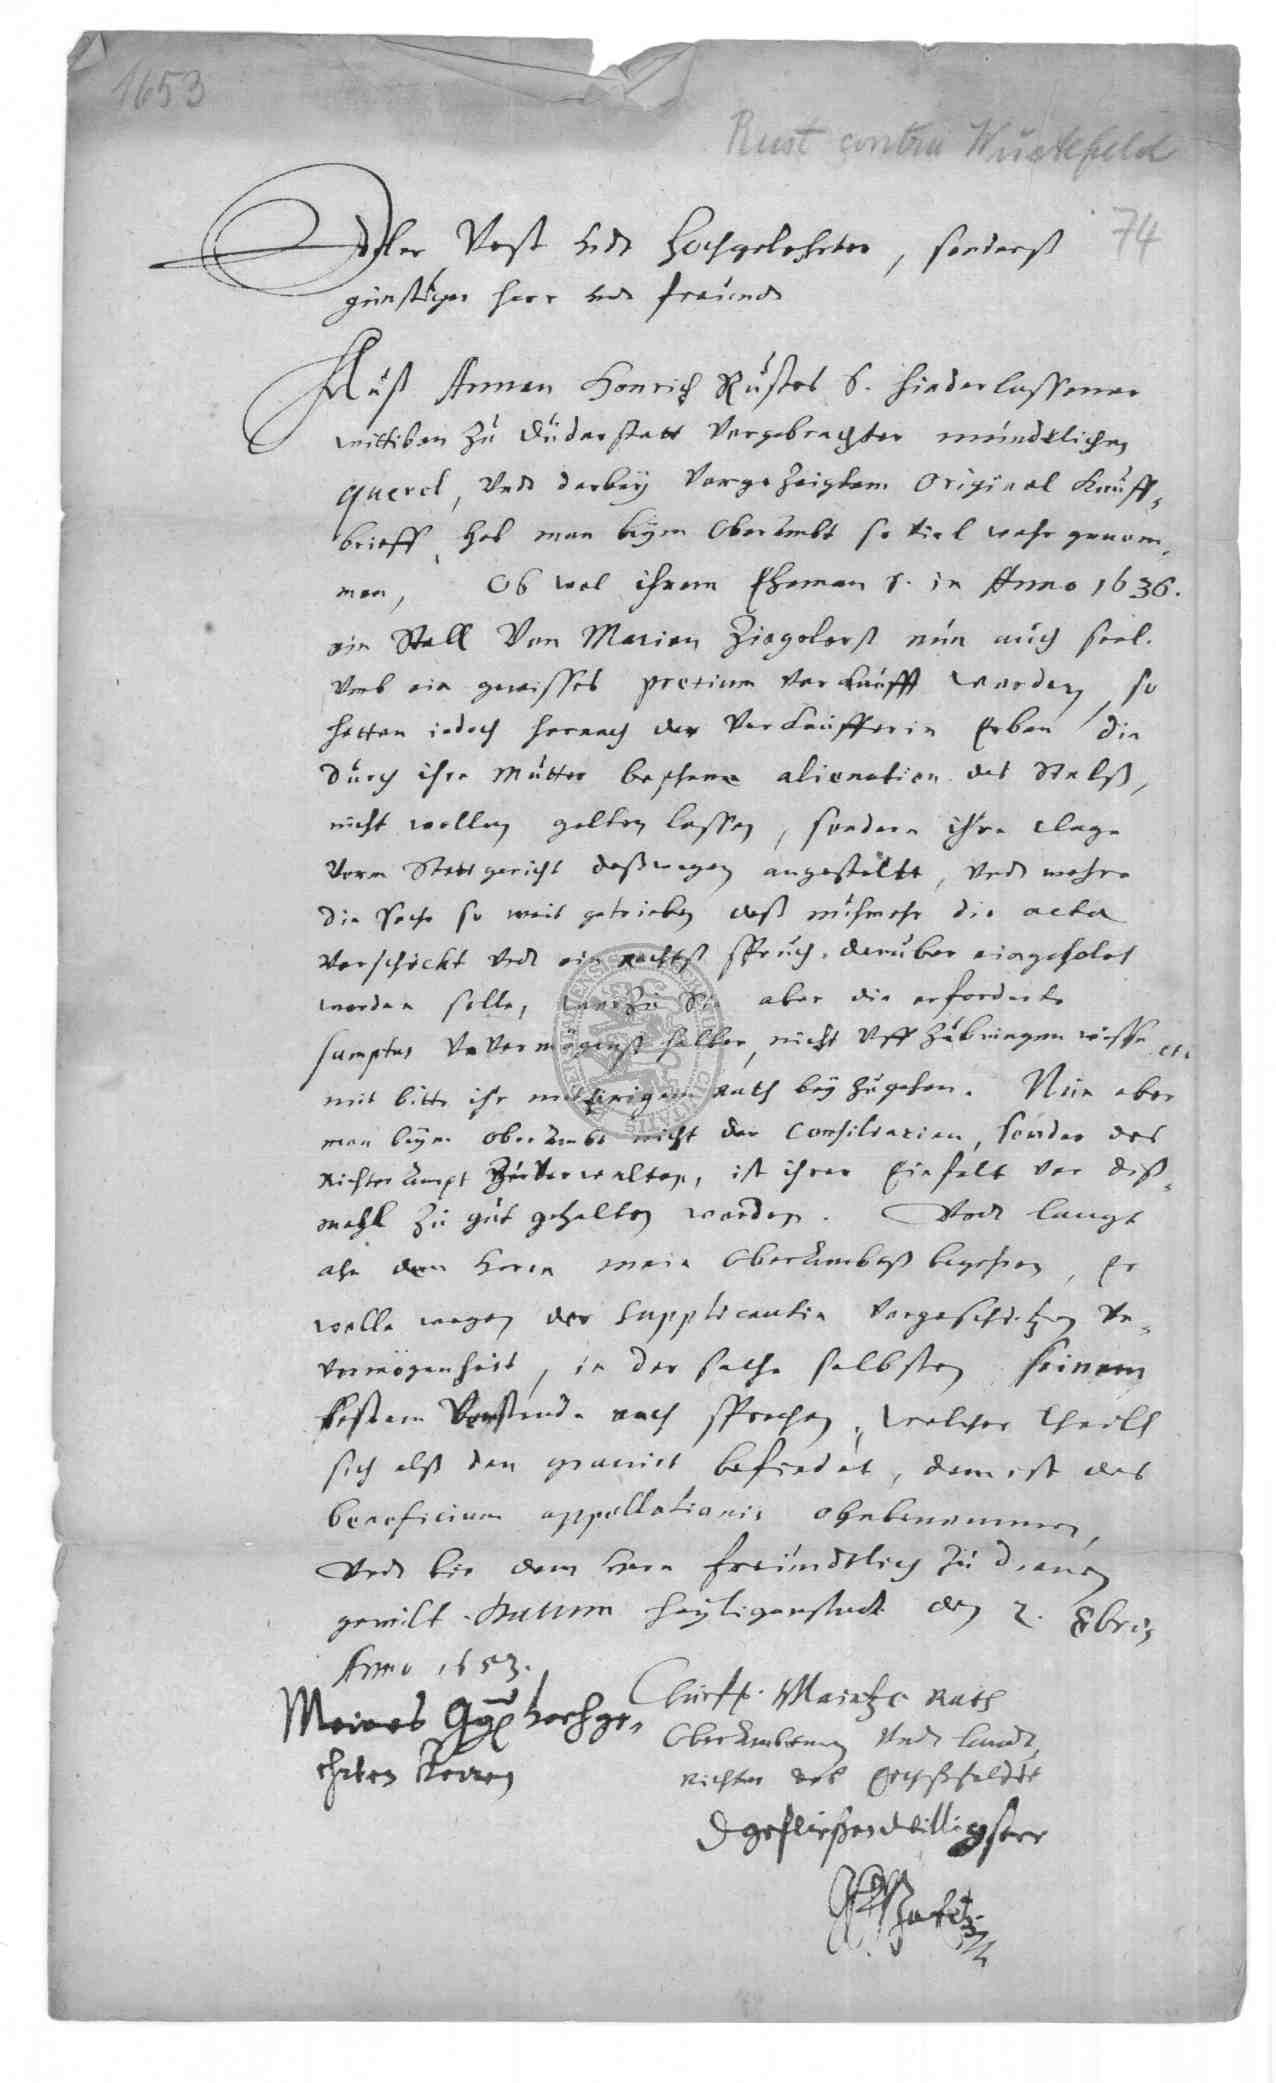 1653
Rust contra Wüstefeld
74
Edler Vest undt Hochgelehrter, sonders
günstiger Herr undt freundt
Auß Annen Henrich Rustes S. hinderlassener
wittiben zu Duderstatt vorgebrachter mündtlichen
querel, undt darbey vorgezeigtem Original Kauff-
brieff, hab man beym Oberambt so viel wahr genom-
men, Ob wol ihrem Eheman s. in Anno 1636.
ein Stell von Marien Zieglerß nun auch seel.
umb ein gewisses pretium verkaufft worden, so
hetten iedoch hernach der Verkaufferin Erben die
durch ihre Mutter beschene alienation des Stelß,
nicht wollen gelten lassen, sondern ihre clage
vorm Stattgericht deßwegen angestellt, undt wehre
die sache so weit getrieben daß nuhmehr die acta
verschickt undt ein rechtß spruch darüber eingeholet
werden solle, warzu Sie aber die erforderte
sumptus Unvermögenß halber, nicht uff zubringen wisse etc
mit bitt ihr mit hiesigem Rath bey zugehen. Nun aber
man beym oberambt nicht der Consiliarien, sonder das
Richter ampt zu verwalten, ist ihrer Einfalt vor diß-
mahl zu gut gehalten worden. Undt langt
ahn den Herrn mein Oberambtß begehren, Er
wolle wegen der supplicantin vorgeschützten Un-
vermögenheit, in der sache selbsten seinem
bestem Verstande nach sprechen, welcher theill
sich alß dan gravirt befindet, dem ist das
beneficium appellationis ohnbenommen,
Undt bin dem Herrn freundtlich zu dienen
gewilt. Datum Heyligenstadt den 2. 8bris
Anno 1653.
Meines hochge-
ehrten Herren
Churf. Maintz. Rath
Oberambtman undt landt
Richter des Eichßfeldts
dienstwilliger